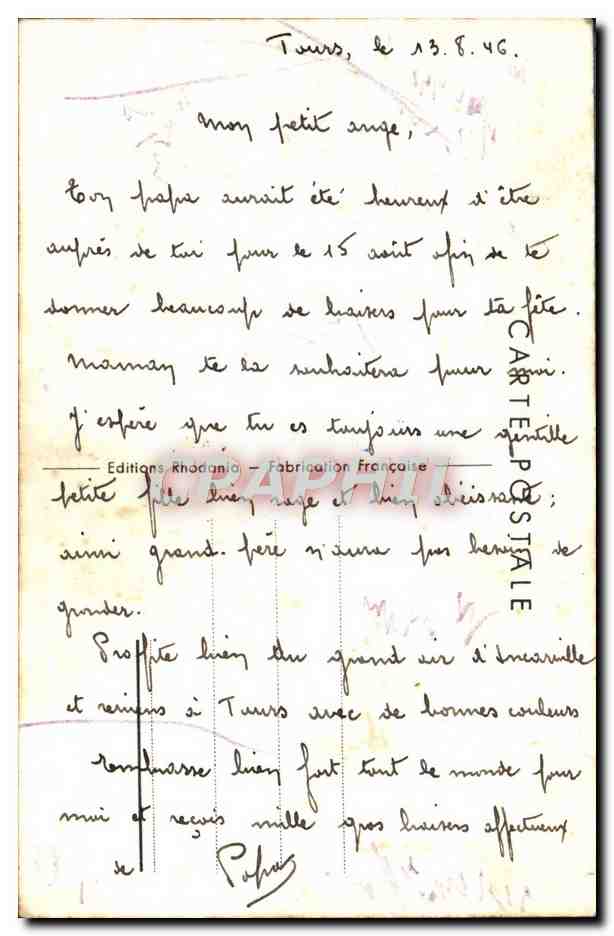 Tours, le 13.8.46.
Mon petit ange,
Ton papa aurait été heureux d'être
auprès de toi pour le 15 août afin de te
donner beaucoup de baisers pour ta fête.
Maman te la souhaitera pour moi.
J'espère que tu es toujours une gentille
Editions Rhodania — Fabrication Française
petite fille bien sage et bien obéissante;
ainsi grand-père n'aura pas besoin de
gronder.
Proffite bien du grand air d'Incarville
et reviens à Tours avec de bonnes couleurs
Rembrasse bien fort tout le monde pour
moi et reçois mille gros baisers affectueux
de Papa
CARTE POSTALE
CPAPHIL